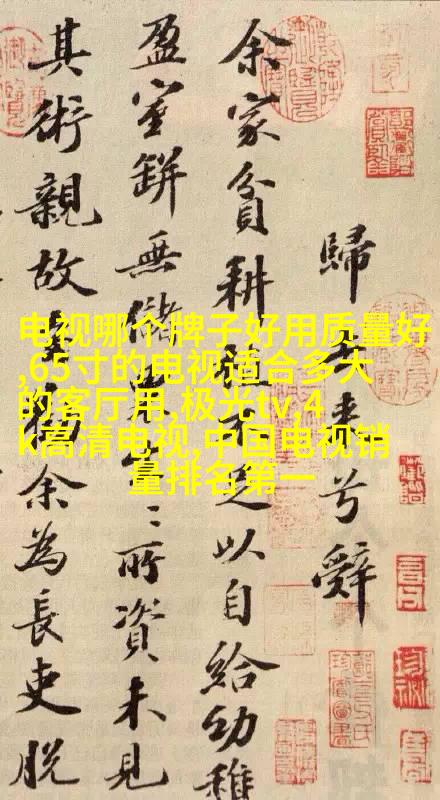 歸去来兮辭
余家貧耕植不足以自給幼稚
盈室缾無儲粟生〻所資未見
其術親故多勸余為長吏脱
电视哪个牌子好用质量好
,65寸的电视适合多大
的客厅用,极光tv,4
k高清电视,中国电视销
量排名第一